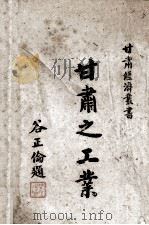 甘肅經濟叢書
甘肅之工業
谷正倫題